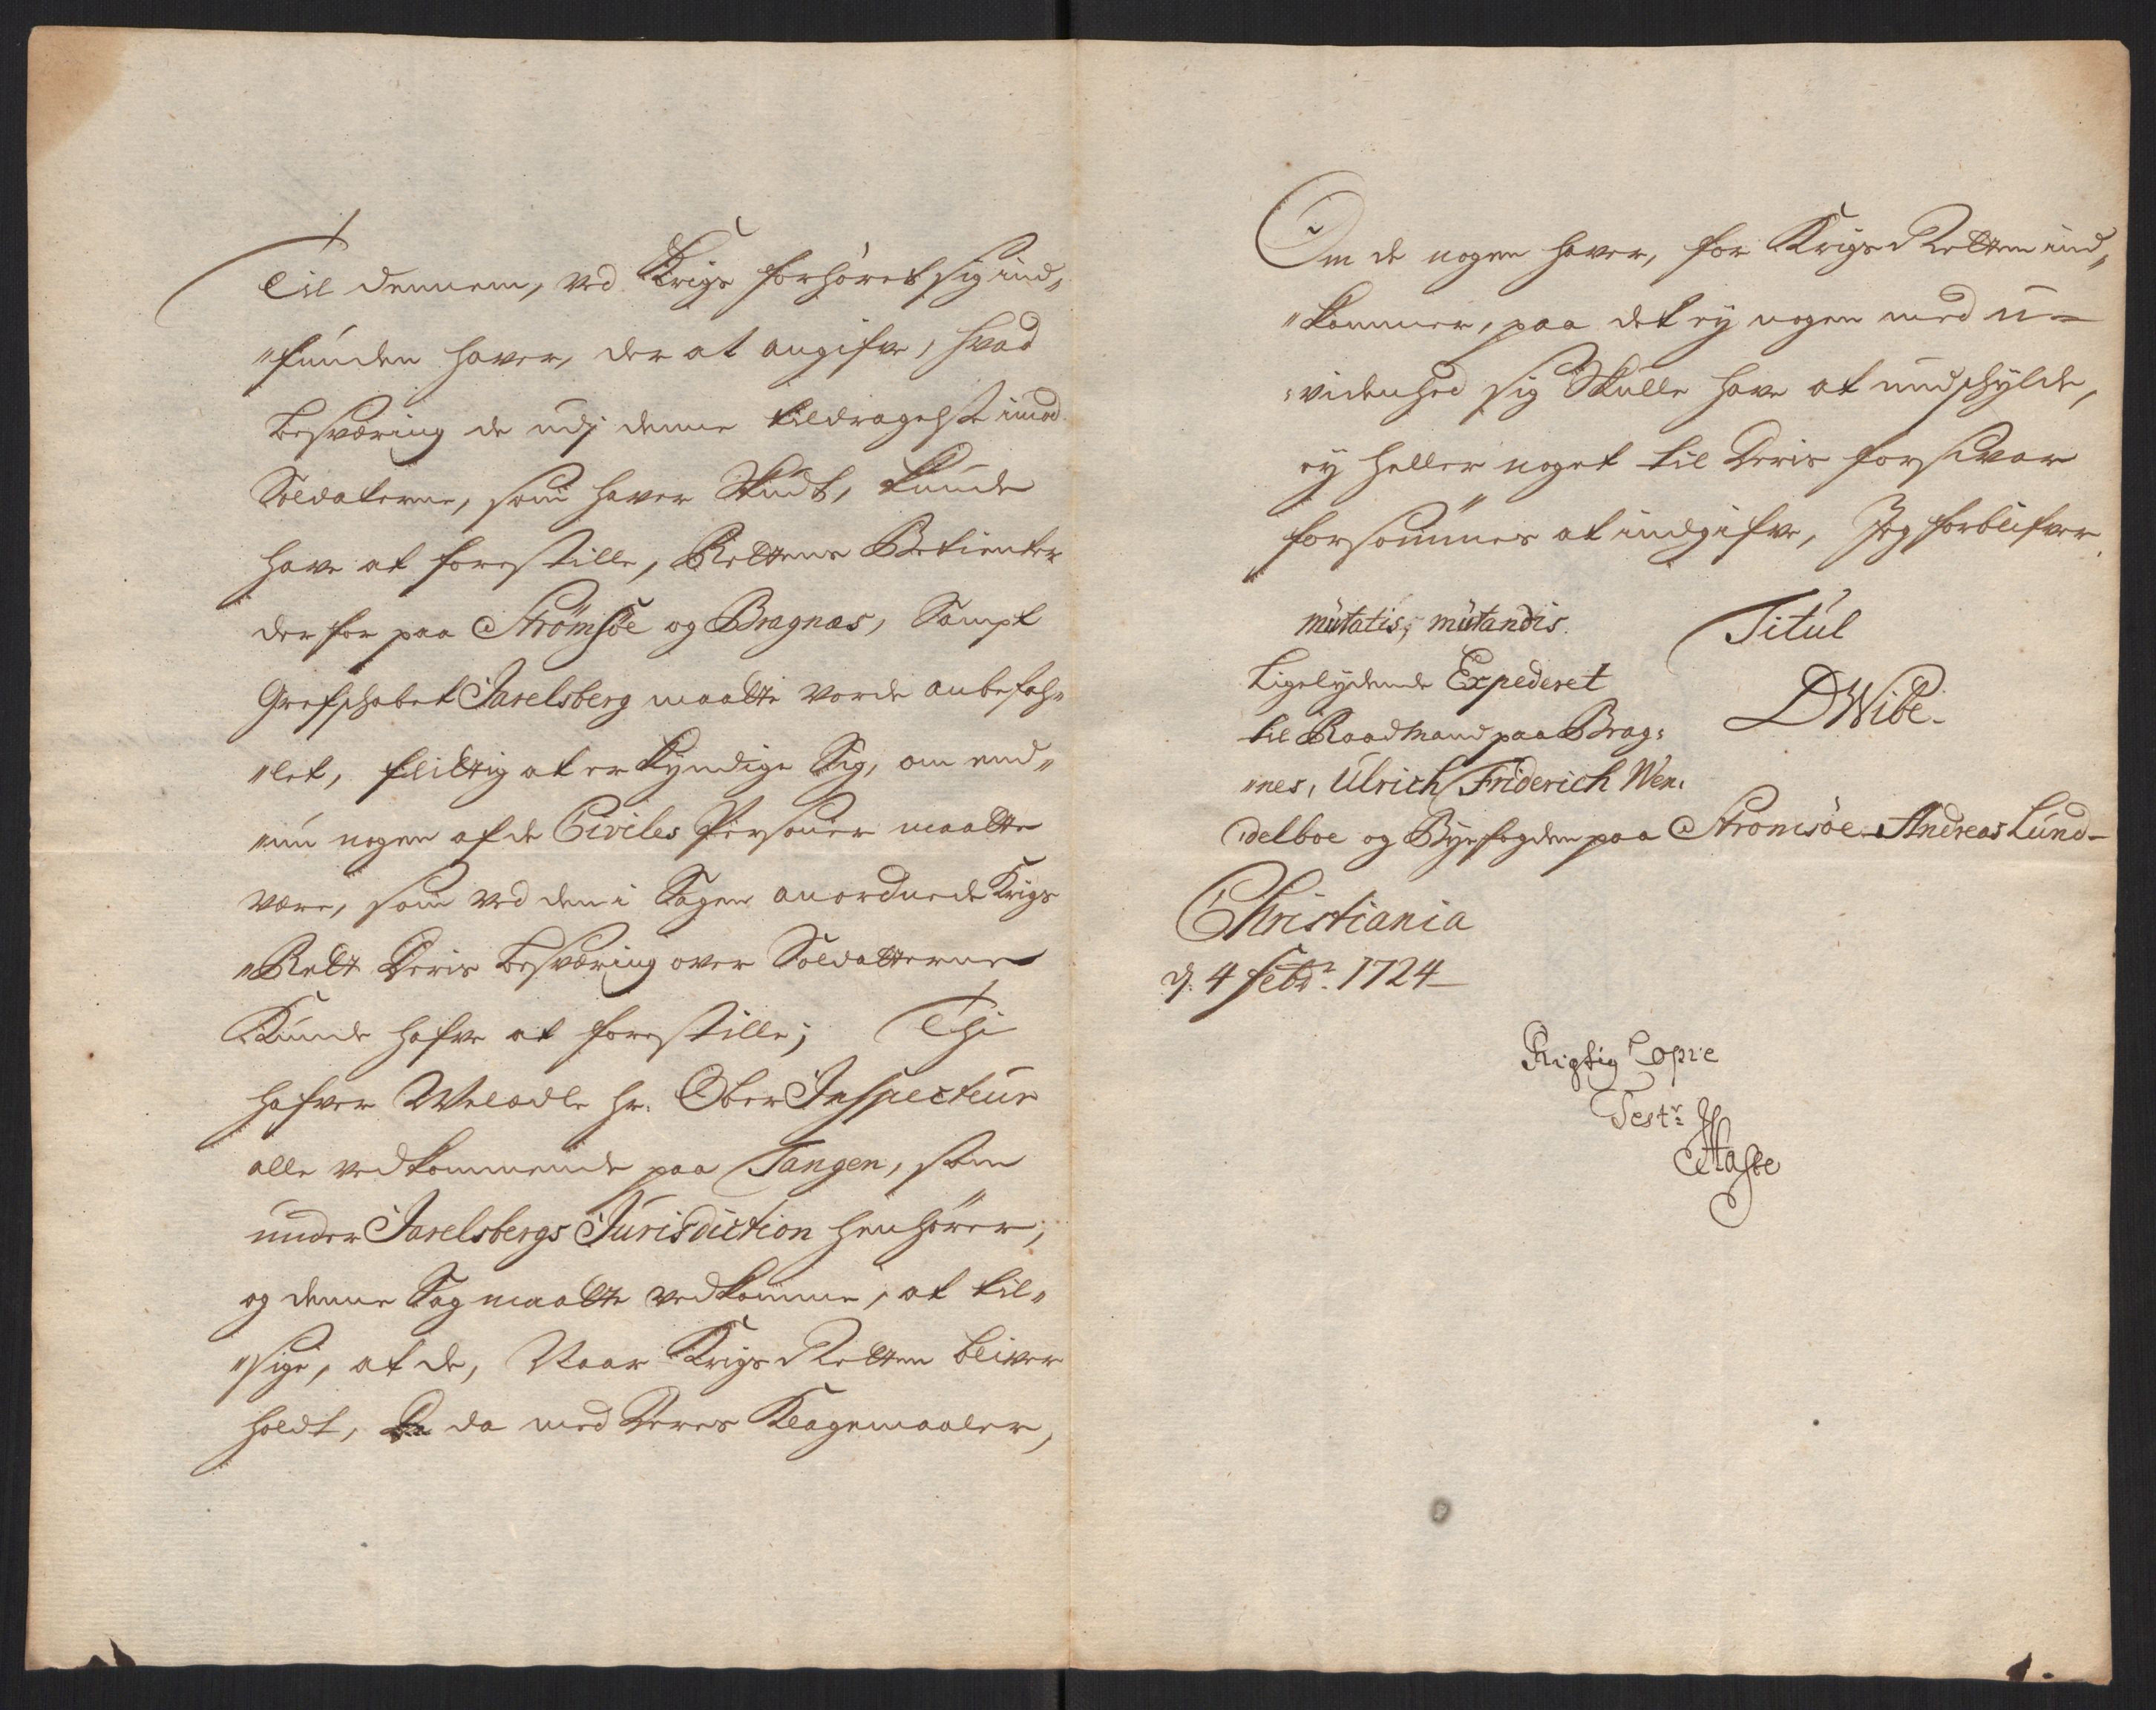 Til dennem, ved Krigs forhöret sig ind„
„funden haver, der at angifve, hvad
besværing de udj denne tildragelse imod
Soldaterne, som haver Skudt, kunde
have at forestille, Rettens Betienter
derfor paa Strömsöe og Bragnæs, Sampt
Grefschabet Jarelsberg maatte vorde anbefah„
„let, flittig at erkyndige Sig, om end„
„nu nogen af de Civiles Persouer maatte
være, som ved den i Sagen anordnede Krigs
„Rett Deris besværing over Soldatterne
Kunde hafve at forestille; Thi
hafver Weledle Hr. Ober Inspecteur
alle vedkommende paa Tangen, som
under Jarelsbergs Jurisdiction henhörer,
og denne Sag maatte vedkomme, at til„
„sige, at de, Naar Krigs Retten bliver
holdt, da med Deres Klagemaaler,
Om de nogen haver, for Krigs Retten ind„
„kommer, paa det ey nogen med u=
„videnhed sig Skulle have at undschylde,
ey heller noget til Deris forsvar
forsömmes at indgifve, Jeg forblifver
mutatis, mutandis. Titul
Ligelydende Expederet
til Raadmand paa Brag: DWibe.
„nes, Ulrich Friderich Wen:
delboe og Byefogden paa Stromsöe Andreas Lund-
Christiania
d. 4 Febr: 1724
Rigtig Copie
Testr: